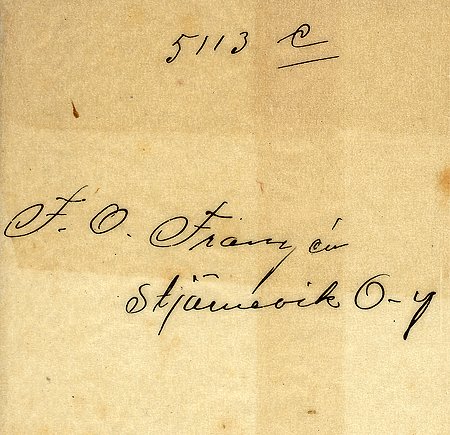 5113 C
F. O. Franzén
Stjärnevik O-y